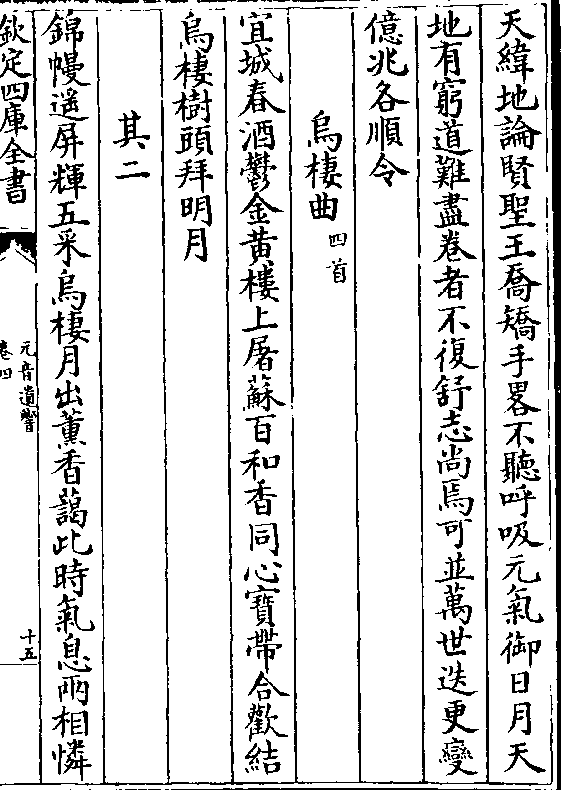 天緯地論賢聖王喬矯手畧不聽呼吸元氣御日月天
地有窮道難盡卷者不復舒志尚焉可並萬世迭更變
億兆各順令
烏棲曲四首
宜城春酒鬱金黄樓上屠蘇百和香同心寶帶合歡結
烏棲樹頭拜明月
其二
錦幔遥屏輝五采烏棲月出薰香藹此時氣息兩相憐
欽定四庫全書
元音遺響
卷四
十五